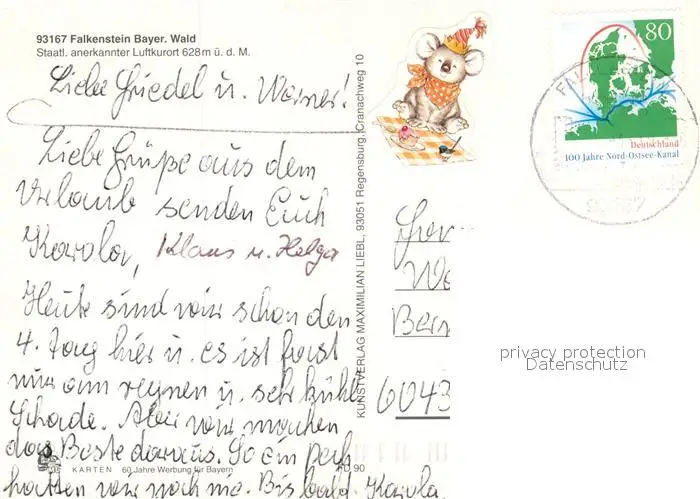 93167 Falkenstein Bayer. Wald
Staatl. anerkannter Luftkurort 628 m ü. d. M.
Liebe Friedel u. Werner!
Liebe Grüße aus dem
Urlaub senden Euch
Karola, Klaus u. Helga
Heute sind wir schon den
4. Tag hier u. es ist fast
nur am regnen u. sehr kühl
Schade. Aber wir machen
das Beste daraus. So ein Pech
hatten wir noch nie. Bis bald. Karola.
KARTEN 60 Jahre Werbung für Bayern
KUNSTVERLAG MAXIMILIAN LIEBL, 93051 Regensburg, Cranachweg 10
80
Deutschland
100 Jahre Nord-Ostsee-Kanal
6043
privacy protection
Datenschutz